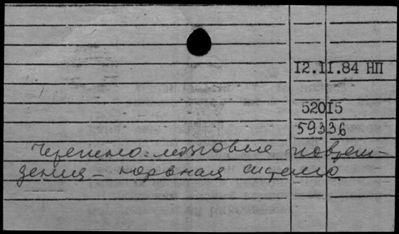 12.11.84 НП
52015
59336
Черепно-мозговые повреж-
дения – нервная система